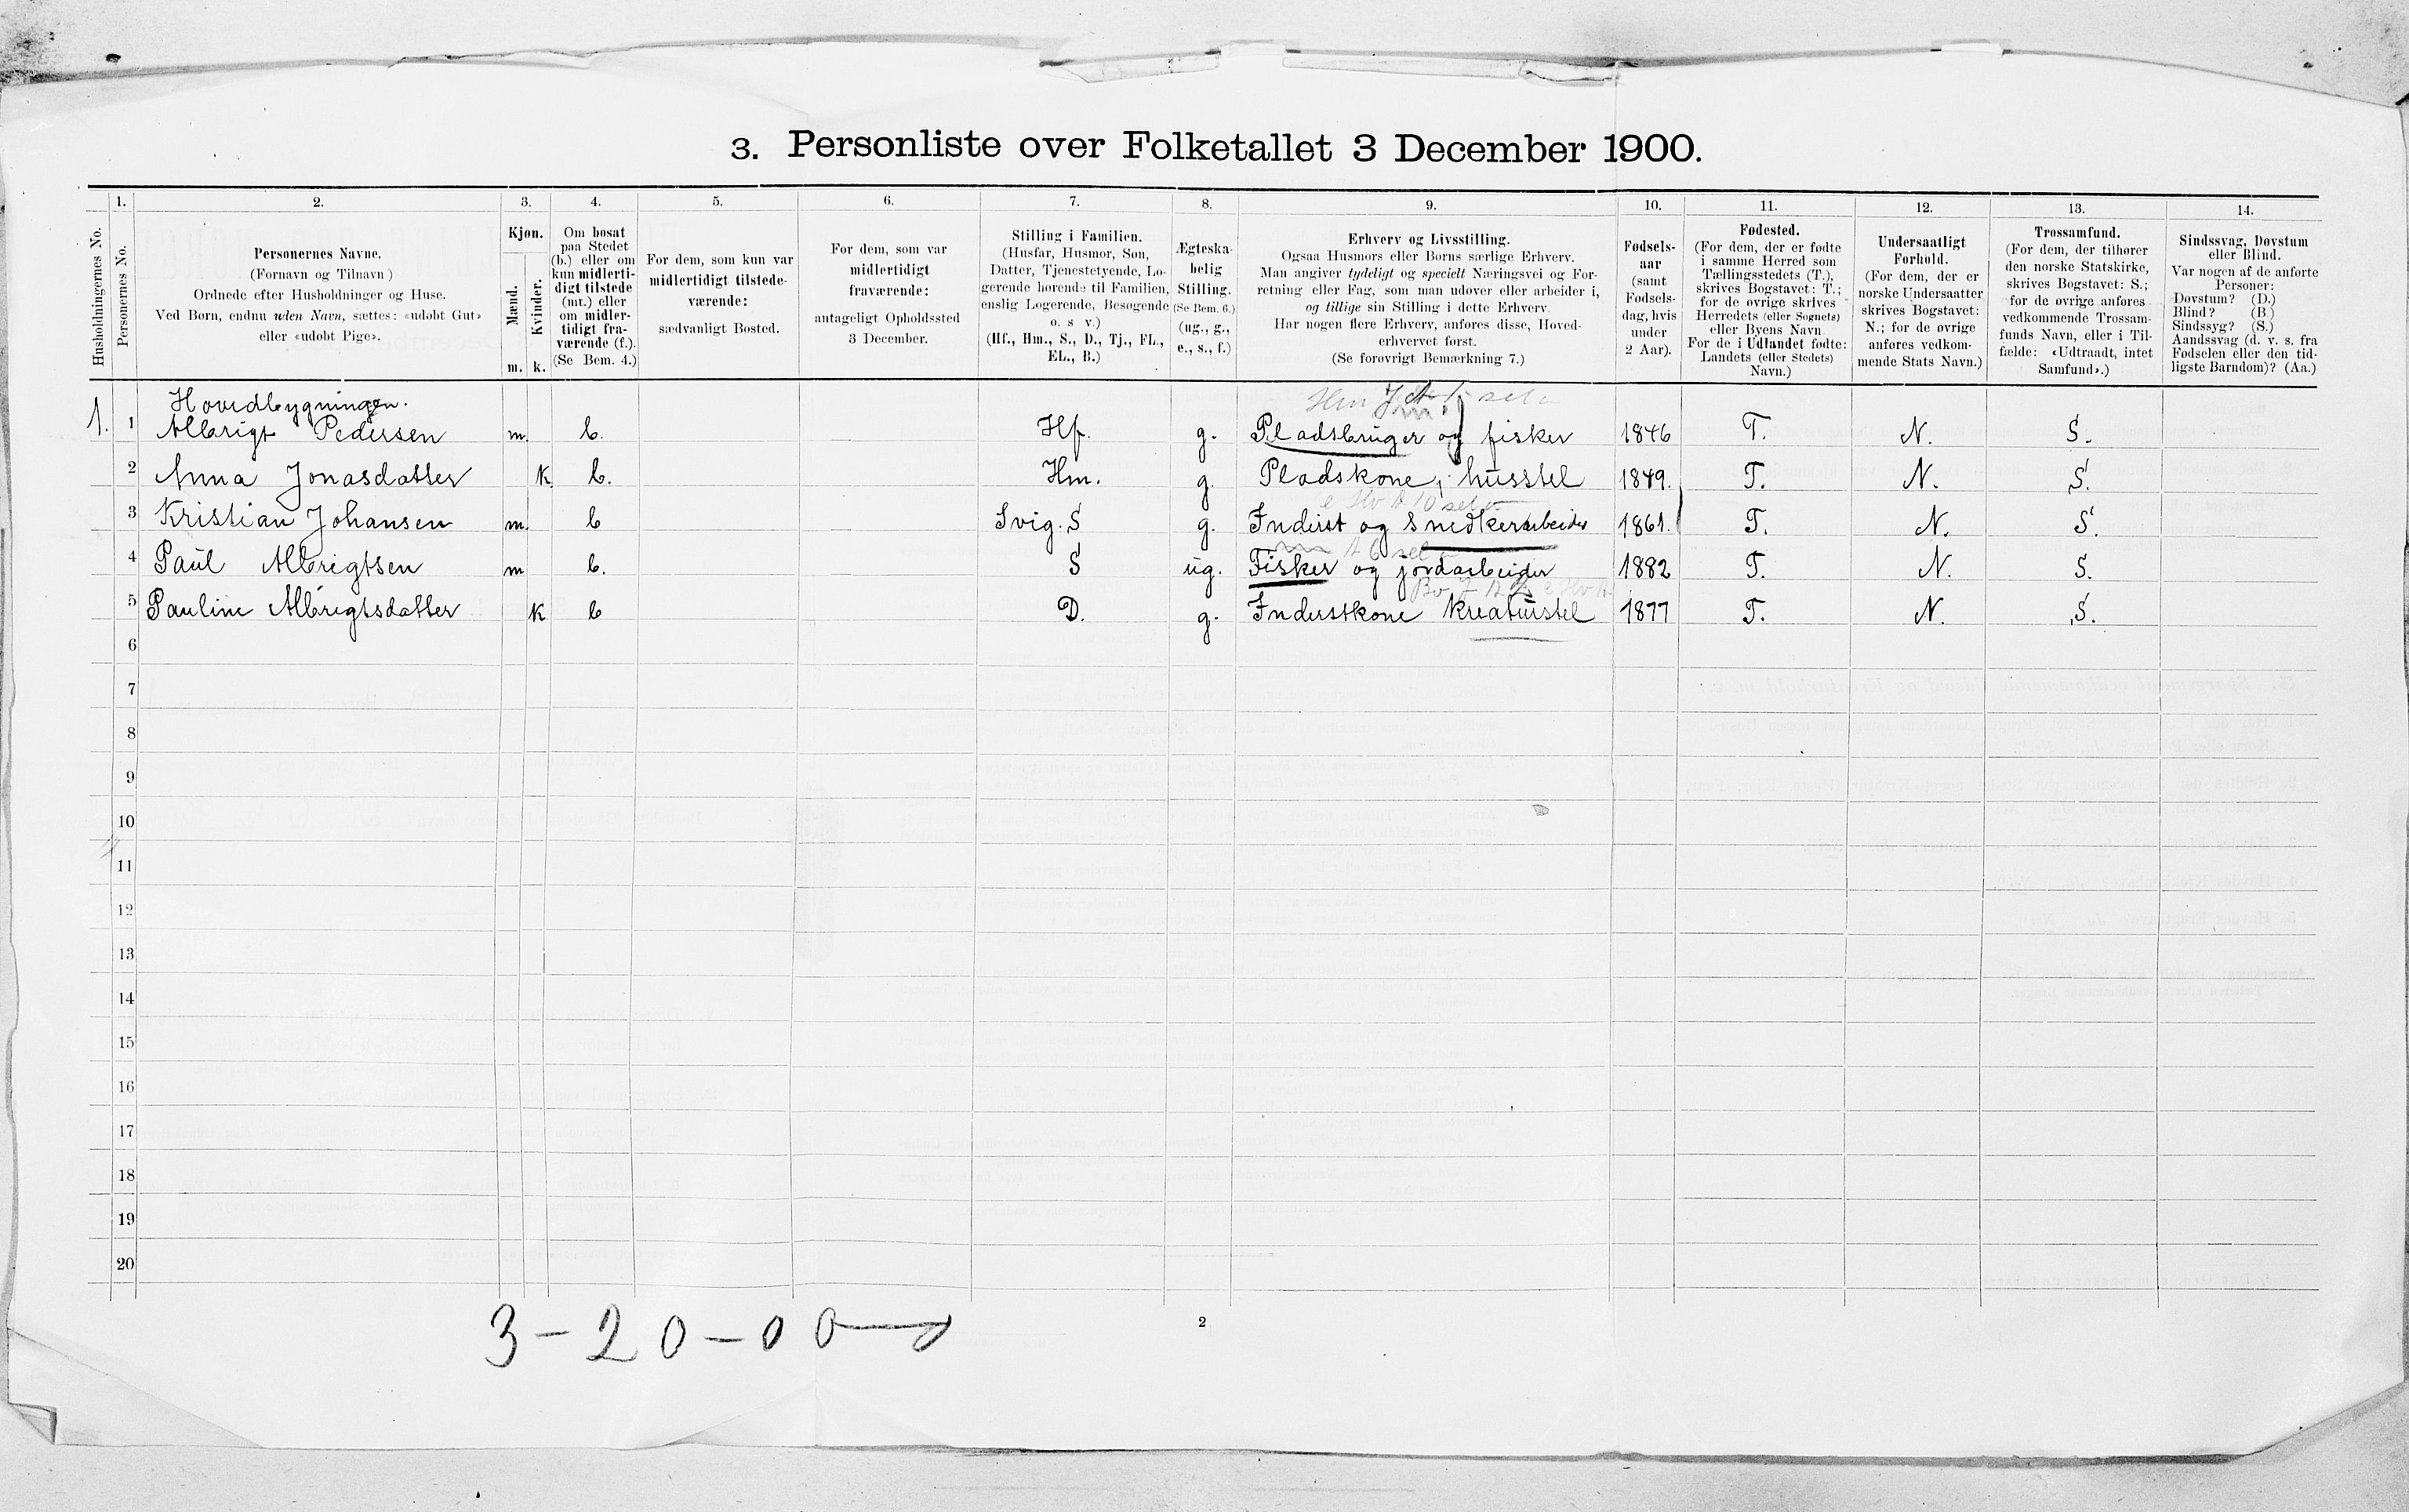 3. Personliste over Folketallet 3 December 1900.
1. 2. 3. 4. 5. 6. 7. 8. 9. 10. 11. 12. 13. 14.
Husholdningernes No.
Personernes No.
Personernes Navne.
(Fornavn og Tilnavn)
Ordnede efter Husholdninger og Huse.
Ved Børn, endnu uden Navn, sættes: «udøbt Gut»
eller «udøbt Pige».
Kjøn.
Mænd.
Kvinder.
m. k.
Om bosat
paa Stedet
(b.) eller om
kun midlerti-
digt tilstede
(mt.) eller
om midler-
tidigt fra-
værende (f.).
(Se Bem. 4.)
For dem, som kun var
midlertidigt tilstede-
værende:
sædvanligt Bosted.
For dem, som var
midlertidigt
fraværende:
antageligt Opholdssted
3 December.
Stilling i Familien.
(Husfar, Husmor, Søn,
Datter, Tjenestetyende, Lo-
gerende hørende til Familien,
enslig Logerende, Besøgende
o. s v.)
(Hf., Hm., S., D., Tj., FL.,
EL., B.)
Ægteska-
belig
Stilling.
(Se Bem. 6.)
(ug., g.,
e., s., f.)
Erhverv og Livsstilling.
Ogsaa Husmors eller Børns særlige Erhverv.
Man angiver tydeligt og specielt Næringsvei og For-
retning eller Fag, som man udøver eller arbeider i,
og tillige sin Stilling i dette Erhverv.
Har nogen flere Erhverv, anføres disse, Hoved-
erhvervet først.
(Se forøvrigt Bemærkning 7.)
Fødsels-
aar
(samt
Fødsels-
dag, hvis
under
2 Aar).
Fødested.
(For dem, der er fødte
i samme Herred som
Tællingsstedets (T.),
skrives Bogstavet: T.;
for de øvrige skrives
Herredets (eller Sognets)
eller Byens Navn.
For de i Udlandet fødte:
Landets (eller Stedets)
Navn.)
Undersaatligt
Forhold.
(For dem, der er
norske Undersaatter
skrives Bogstavet:
N.; for de øvrige
anføres vedkom-
mende Stats Navn.)
Trossamfund.
(For dem, der tilhører
den norske Statskirke,
skrives Bogstavet: S.;
for de øvrige anføres
vedkommende Trossam-
funds Navn, eller i Til-
fælde: «Udtraadt, intet
Samfund».)
Sindssvag, Døvstum
eller Blind.
Var nogen af de anførte
Personer:
Døvstum? (D.)
Blind? (B.)
Sindssyg? (S.)
Aandssvag (d. v. s. fra
Fødselen eller den tid-
ligste Barndom)? (Aa.)
Hovedbygningen.
1. 1 Albrigt Pedersen m. b. Hf. g. Pladsbruger og fisker 1846 T. N. S.
2 Anna Jonasdatter k b. Hm. g. Pladskone, husstel 1849. T. N. S.
3 Kristian Johansen m. b Svig. S g. Inderst og Snedkerarbeider 1861. T. N. S.
4 Paul Albrigtsen m b. S ug. Fisker og jordarbeider 1882 T. N. S.
5 Pauline Albrigtsdatter k b D. g. Inderstkone kreaturstel 1877 T. N. S.
6
7
8
9
10
11
12
13
14
15
16
17
18
19
20
3-20-00
2